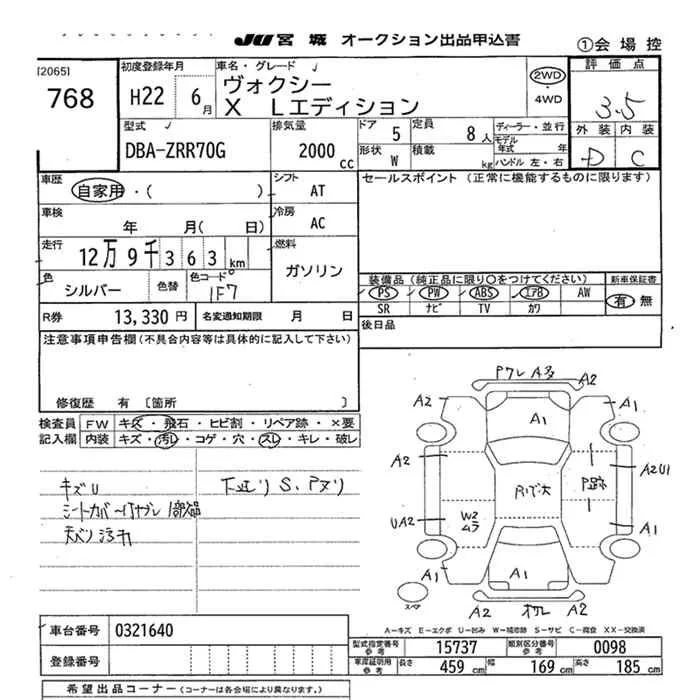 JU 宮 城 オークション出品申込書
①会 場 控
[2065]
768
初度登録年月
H22 6月
車名・グレード
ヴォクシー
X Lエディション
2WD
・
4WD
評 価 点
3.5
外 装 内 装
D C
型式
DBA-ZRR70G
排気量
2000 cc
ドア 5
定員 8人
形状 W
積載 kg
ディーラー・並行
モデル年式 年
ハンドル 左・右
車歴
自家用・( )
シフト
AT
セールスポイント (正常に機能するものに限ります)
車検
年 月( 日)
冷房
AC
走行
12万9千363km
燃料
ガソリン
色
シルバー
色替
色コード
1F7
装備品 (純正品に限り○をつけてください)
PS PW ABS エアB AW
SR ナビ TV カワ
新車保証書
有 無
R券 13,330 円
名変通知期限 月 日
後日品
注意事項申告欄 (不具合内容等は具体的に記入して下さい)
修復歴 有 〔箇所 〕
検査員
記入欄
FW キズ・飛石・ヒビ割・リペア跡・×要
内装 キズ・汚レ・コゲ・穴・スレ・キレ・破レ
キズU
下廻り S、Pヌリ
天バリ汚れ
Pワレ A多 A2
A2 A1
A1
A2 A2U1
P跡
UA2 W2 ムラ A1
A1 A1 A2
スペア
A2 オワレ A2
A-キズ E-エクボ U-凹ミ W-補修跡 S-サビ C-腐食 XX-交換済
車台番号 0321640
登録番号
型式指定番号
参考
15737
類別区分番号
参考
0098
車庫証明用
参考
長さ 459 cm 幅 169 cm 高さ 185 cm
希望出品コーナー (コーナーは各会場により異なります。)